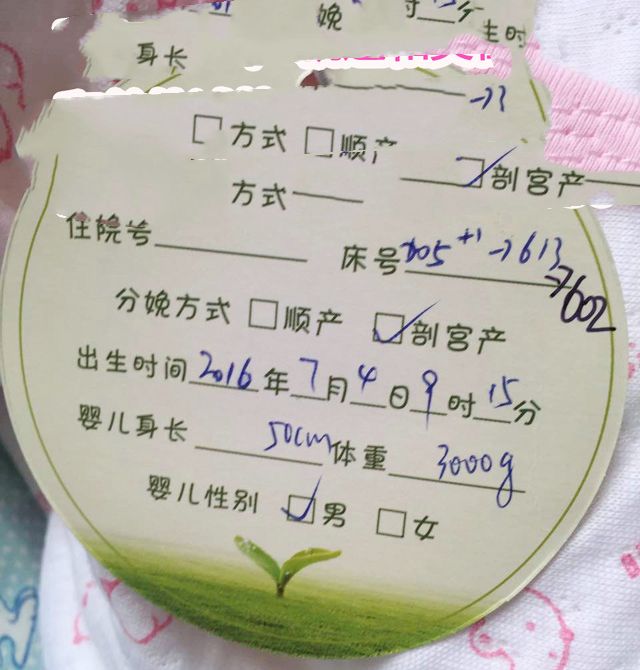 娩 时 分
身长 生时
方式 □顺产 ☑剖宫产
方式
住院号 床号705+1→613
→602
分娩方式 □顺产 ☑剖宫产
出生时间2016年7月4日9时15分
婴儿身长 50cm体重 3000g
婴儿性别 ☑男 □女